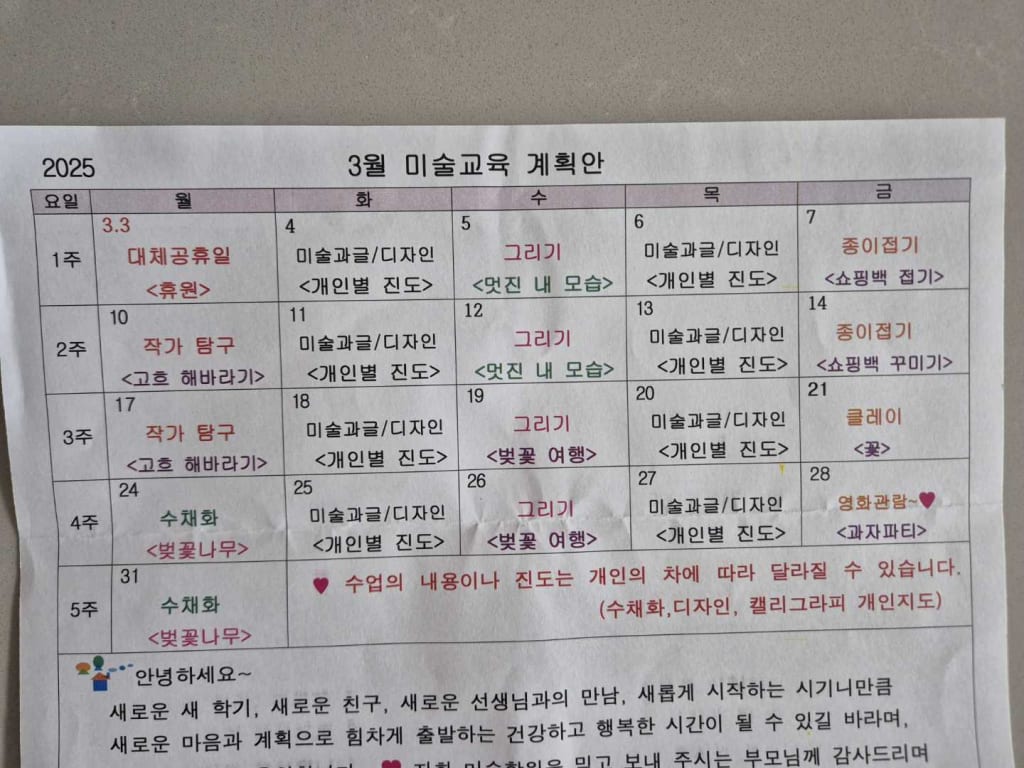 2025 3월 미술교육 계획안
요일 월 화 수 목 금
1주
3.3
대체공휴일
<휴원>
4
미술과글/디자인
<개인별 진도>
5
그리기
<멋진 내 모습>
6
미술과글/디자인
<개인별 진도>
7
종이접기
<쇼핑백 접기>
2주
10
작가 탐구
<고흐 해바라기>
11
미술과글/디자인
<개인별 진도>
12
그리기
<멋진 내 모습>
13
미술과글/디자인
<개인별 진도>
14
종이접기
<쇼핑백 꾸미기>
3주
17
작가 탐구
<고흐 해바라기>
18
미술과글/디자인
<개인별 진도>
19
그리기
<벚꽃 여행>
20
미술과글/디자인
<개인별 진도>
21
클레이
<꽃>
4주
24
수채화
<벚꽃나무>
25
미술과글/디자인
<개인별 진도>
26
그리기
<벚꽃 여행>
27
미술과글/디자인
<개인별 진도>
28
영화관람~♥
<과자파티>
5주
31
수채화
<벚꽃나무>
♥ 수업의 내용이나 진도는 개인의 차에 따라 달라질 수 있습니다.
(수채화,디자인, 캘리그라피 개인지도)
안녕하세요~
새로운 새 학기, 새로운 친구, 새로운 선생님과의 만남, 새롭게 시작하는 시기니만큼
새로운 마음과 계획으로 힘차게 출발하는 건강하고 행복한 시간이 될 수 있길 바라며,
♥ 저희 미술학원을 믿고 보내 주시는 부모님께 감사드리며